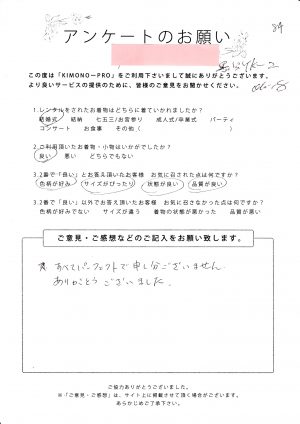 84
アンケートのお願い
この度は「KIMONO－PRO」をご利用下さいまして誠にありがとうございます。
より良いサービスの提供のために、皆様のご意見をお聞かせください。
1.レンタルをされたお着物はどちらに着ていかれましたか？
結婚式　結納　七五三/お宮参り　成人式/卒業式　パーティ
コンサート　お食事　その他（　　　）
2.ご利用頂いたお着物・小物はいかがでしたか？
良い　悪い　どちらでもない
3.2番で「良い」とお答え頂いたお客様　お気に召された点は何ですか？
色柄が好み　サイズがぴったり　状態が良い　品質が良い
3.2番で「良い」以外でお答え頂いたお客様　お気に召さなかった点は何ですか？
色柄が好みでない　サイズが違う　着物の状態が悪かった　品質が悪い
ご意見・ご感想などのご記入をお願い致します。
すべてパーフェクトで申し分ございません。
ありがとうございました。
ご協力ありがとうございました。
※「ご意見・ご感想」は、サイト上に掲載させて頂く場合がございます。
あらかじめご了承下さい。